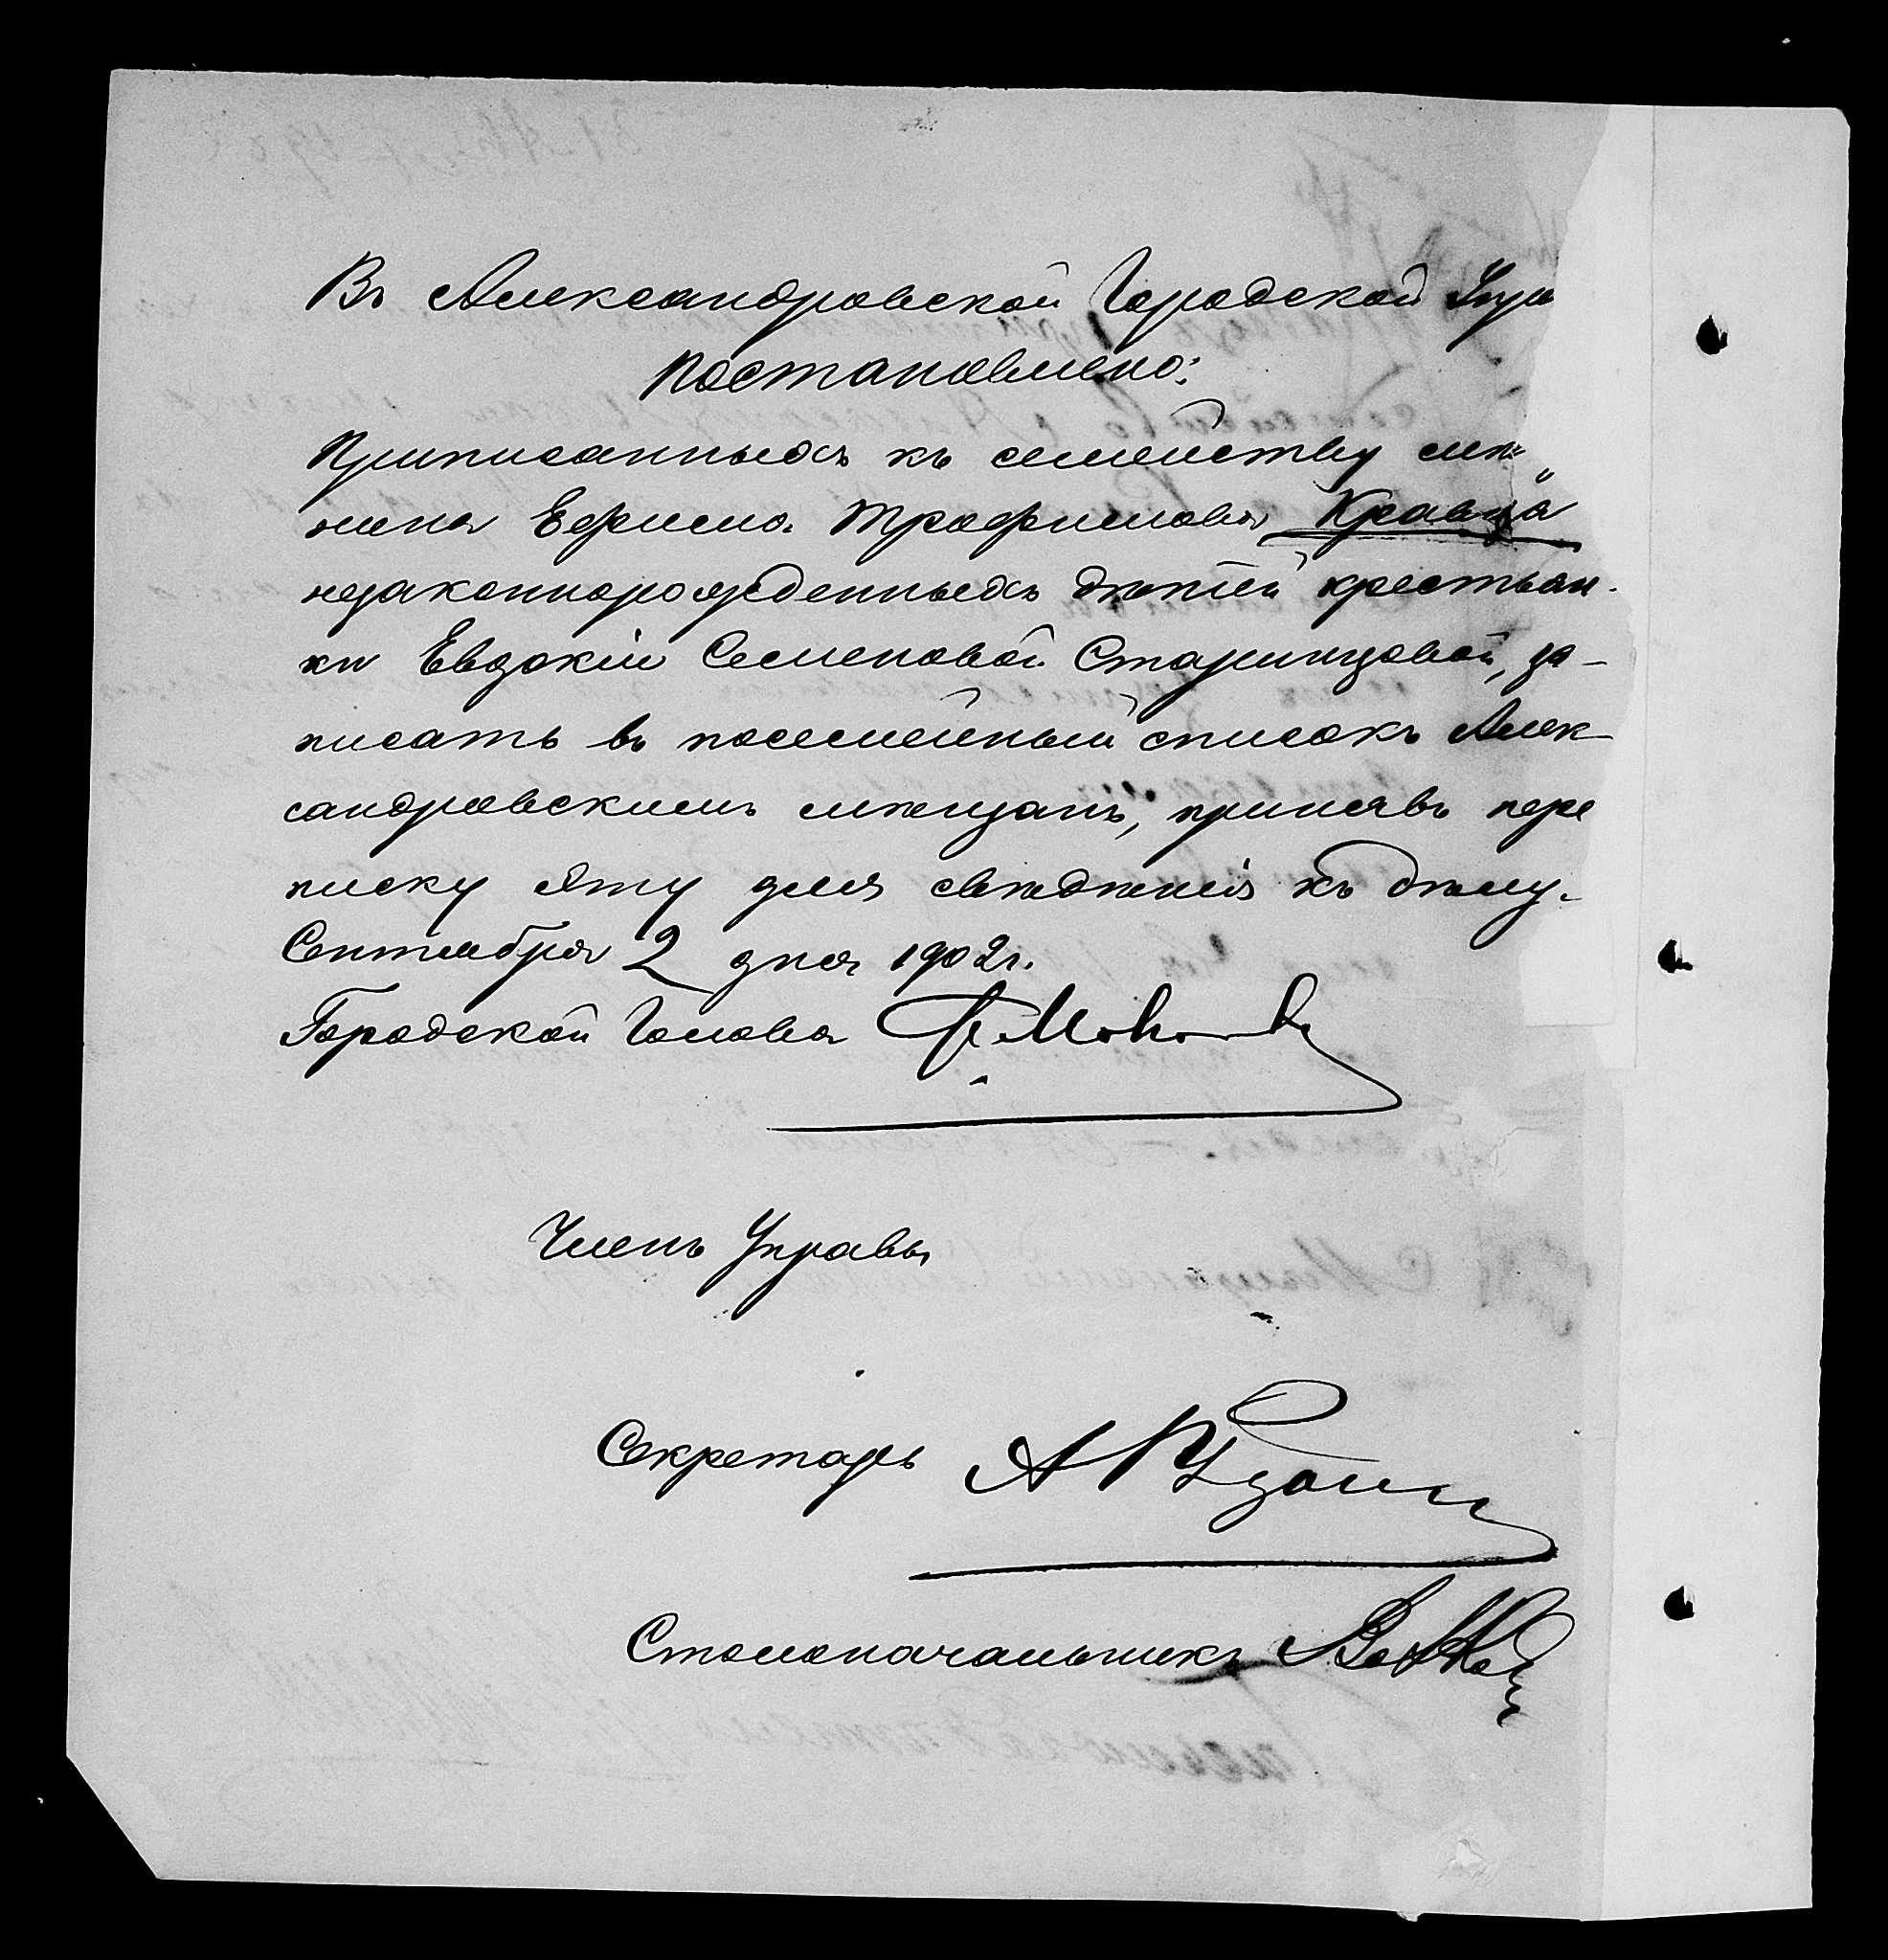 Въ Александровской Городской Упр
постановлено:
Приписанныхъ къ семейству мѣ=
нина Ефима Трофимова Кравца
незаконнорожденныхъ дѣтей крестьян-
ки Евдокіи Семеновой Старинцовой, за-
писать въ посемейный списокъ Алек-
сандровскимъ мѣщанъ, принявъ пере
писку эту для свѣдѣнія къ дѣлу.
Сентября 2 дня 1902г.
Городской Голова
Членъ Управы
Секретарь
Столоначальникъ